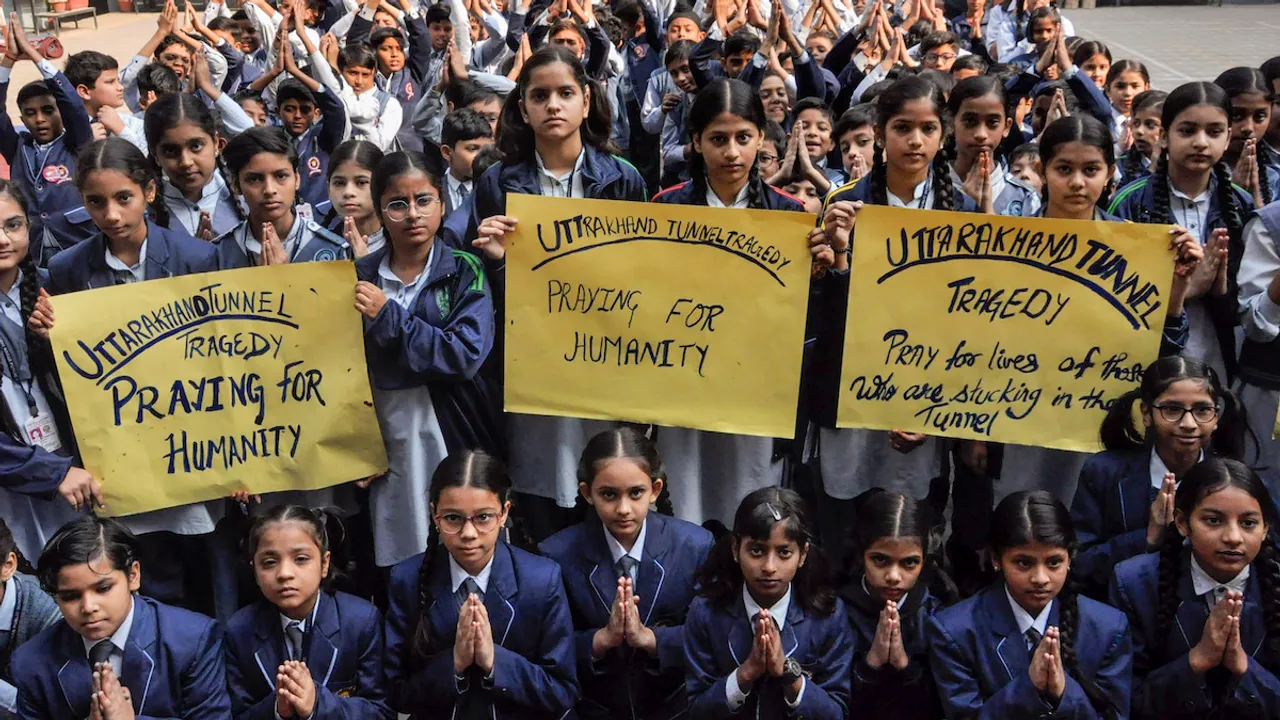 UTTARAKHAND TUNNEL
TRAGEDY
PRAYING FOR
HUMANITY
UTTRAKHAND TUNNEL TRAGEDY
PRAYING FOR
HUMANITY
UTTARAKHAND TUNNEL
TRAGEDY
PRAY for lives of those
Who are stucking in the
Tunnel